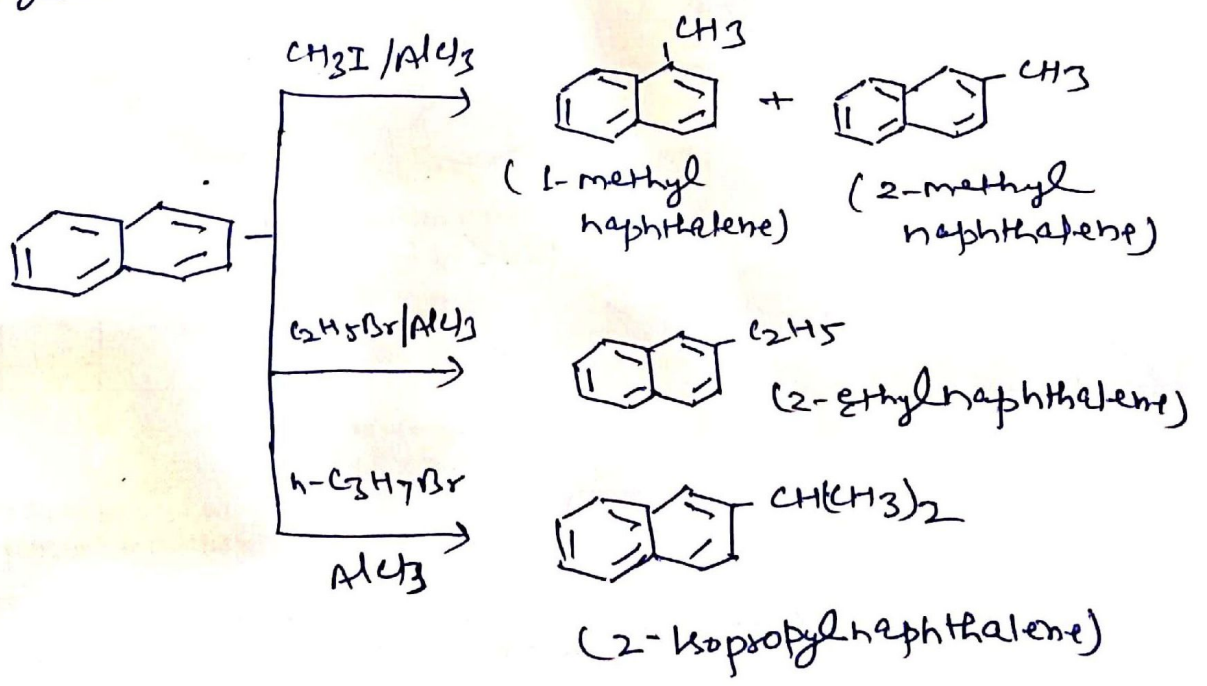 CH3I/AlCl3
CH3
+
CH3
(1-methyl
naphthalene)
(2-methyl
naphthalene)
C2H5Br/AlCl3
C2H5
(2-Ethylnaphthalene)
n-C3H7Br
AlCl3
CH(CH3)2
(2-Isopropylnaphthalene)